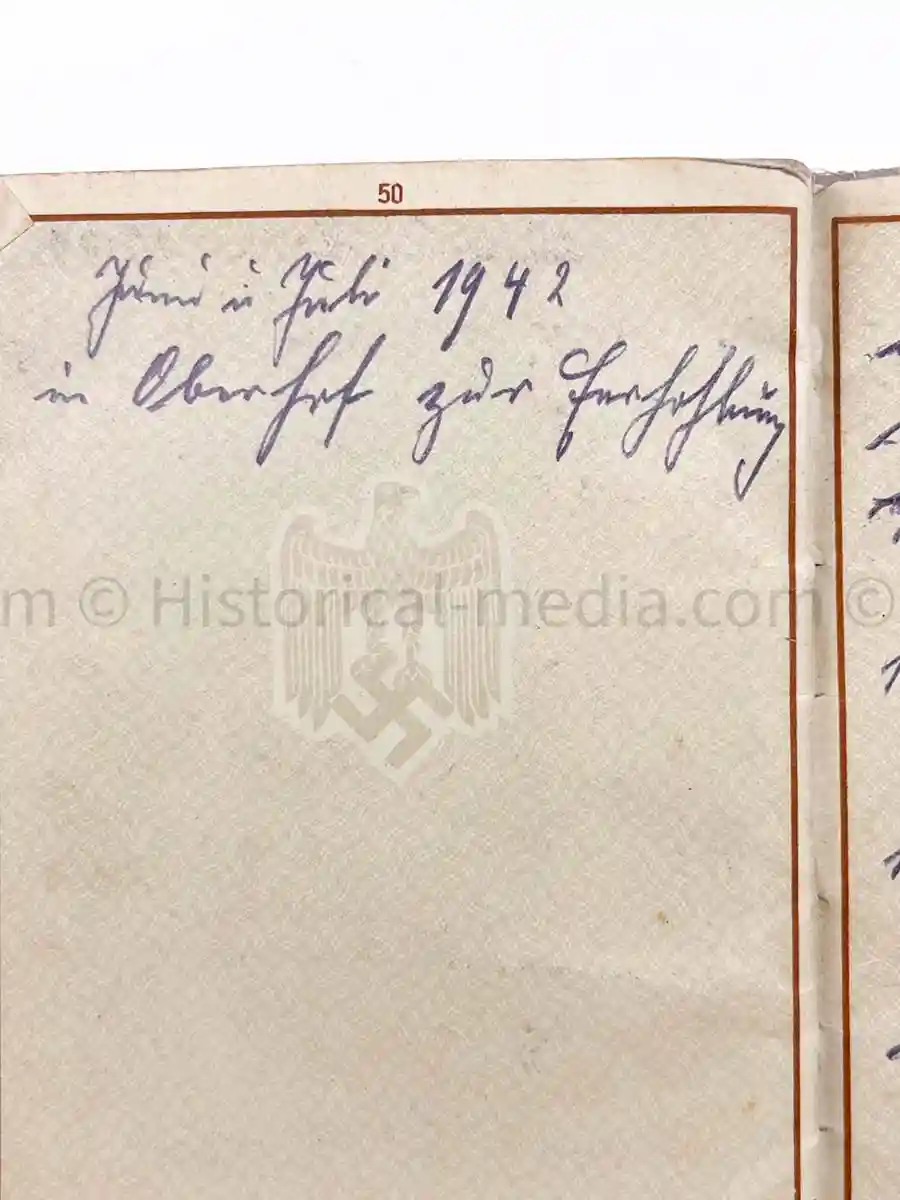 50
Juni u Juli 1942
in Oberhof zur Erhohlung
m © Historical-media.com ©